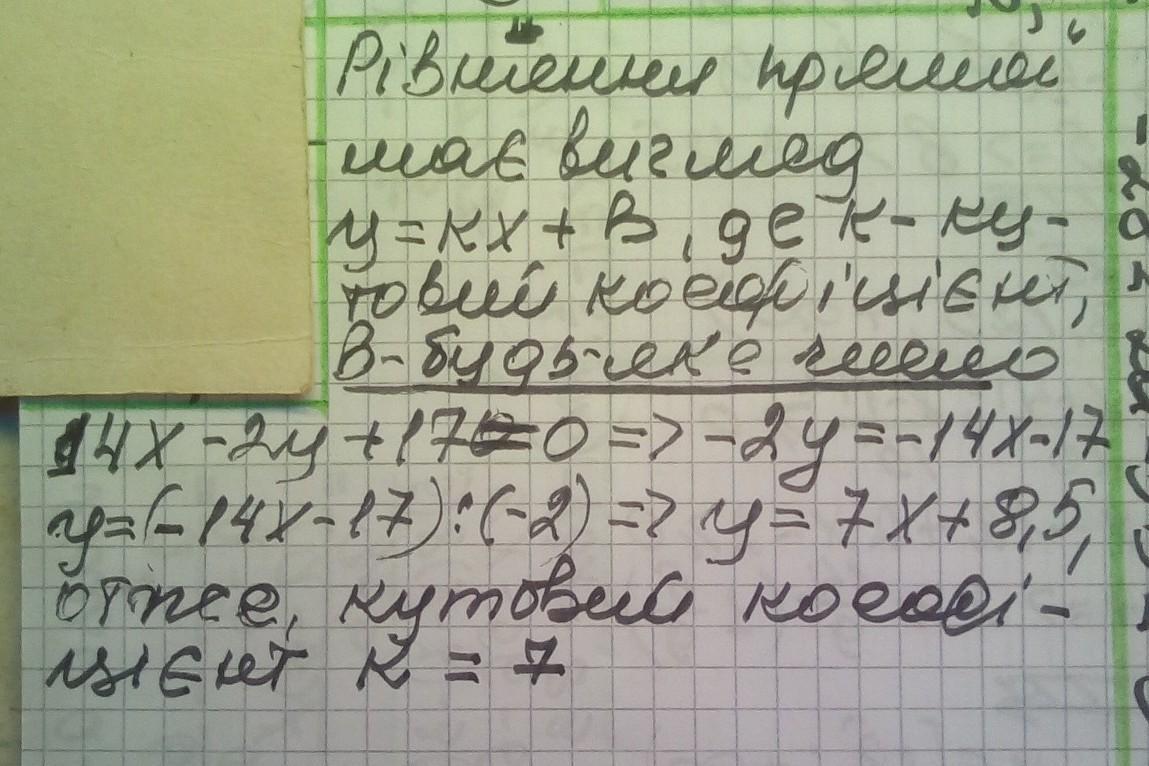 Рівняння прямої
має вигляд
y=kx+B, де k- ку-
товий коефіцієнт,
B-будь-яке число
14x-2y+17=0 => -2y=-14x-17
y=(-14x-17):(-2) => y=7x+8,5,
отже, кутовий коефі-
цієнт k = 7